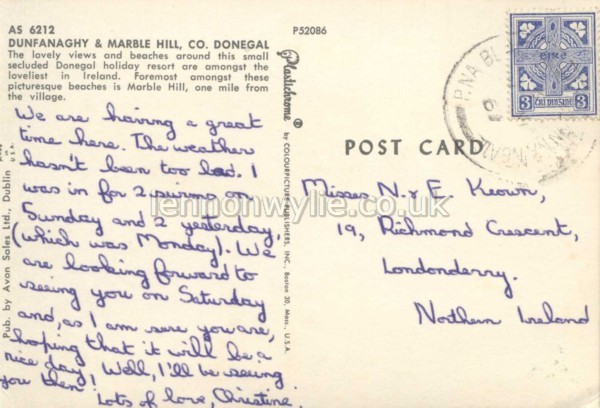 AS 6212
DUNFANAGHY & MARBLE HILL, CO. DONEGAL
The lovely views and beaches around this small
secluded Donegal holiday resort are amongst the
loveliest in Ireland. Foremost amongst these
picturesque beaches is Marble Hill, one mile from
the village.
We are having a great
time here. The weather
hasn't been too bad. I
was in for 2 swims on
Sunday and 2 yesterday,
(which was Monday). We
are looking forward to
seeing you on Saturday
and, as I am sure you are,
hoping that it will be a
nice day! Well, I'll be seeing
you then!
Lots of love, Christine.
Pub. by Avon Sales Ltd., Dublin
U.S.A.
P52086
Plastichrome ®
by COLOURPICTURE PUBLISHERS, INC., Boston 30, Mass., U.S.A.
POST CARD
Misses N & E Keown,
19, Richmond Crescent,
Londonderry.
Northern Ireland
ÉIRE
3 3
lennonwylie.co.uk